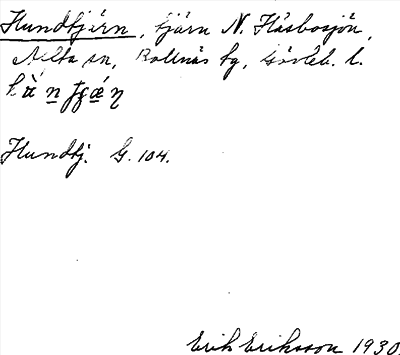 Hundtjärn, tjärn N. Flåsbosjön,
Alfta sn, Bollnäs tg, Gävleb. l.
Hundtj. G. 104.
Erik Eriksson 1930.